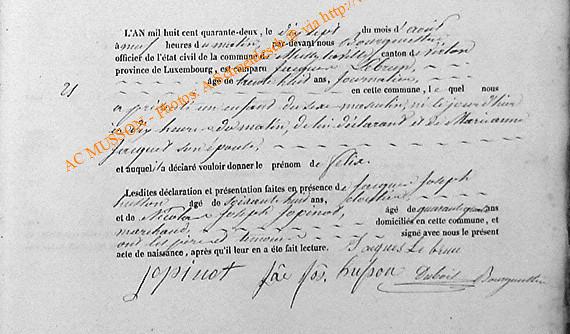 L'AN mil huit cent quarante-deux, le dix sept du mois d'août
à neuf heures du matin, par-devant nous Bourguettin
officier de l'état civil de la commune de canton de Virton
province de Luxembourg, est comparu Jacques Lebrun
âgé de trente huit ans, journalier
21 en cette commune, lequel nous
a présenté un enfant du sexe masculin, né le jour d'hier
à dix heures du matin, de lui déclarant et de Marianne
Jacquet son épouse
et auquel il a déclaré vouloir donner le prénom de Felix.
Lesdites déclaration et présentation faites en présence de Jacques Joseph
husson âgé de soixante huit ans,
et de Nicolas Joseph Jopinot, âgé de quarante quatre ans
marchand domiciliés en cette commune, et
ont les père et témoins signé avec nous le présent
acte de naissance, après qu'il leur en a été fait lecture. Jaques Lebrun
Jopinot jos. husson Dubois Bourguettin
AC MUSSON - Photos: via http://w